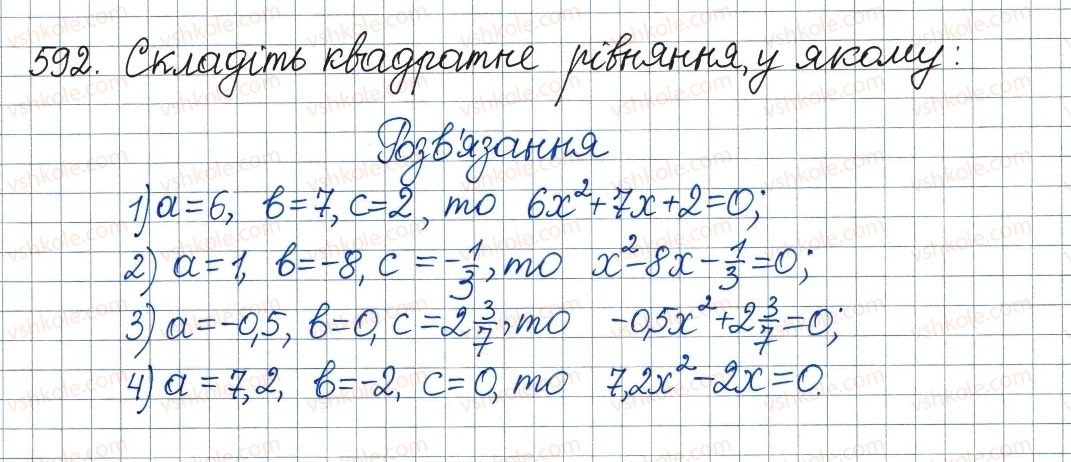 592. Складіть квадратне рівняння, у якому:
Розв'язання
1) a=6, b=7, c=2, то 6x²+7x+2=0;
2) a=1, b=-8, c=-1/3, то x²-8x-1/3=0;
3) a=-0,5, b=0, c=2 3/7, то -0,5x²+2 3/7=0;
4) a=7,2, b=-2, c=0, то 7,2x²-2x=0.